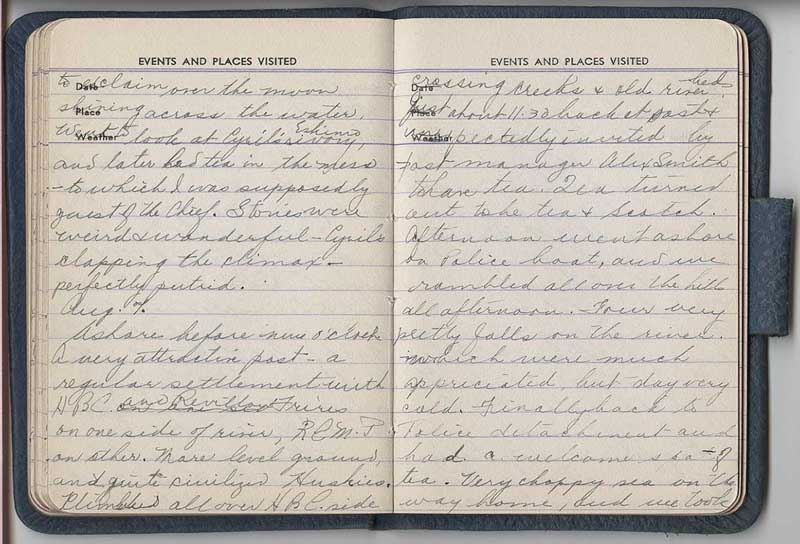 EVENTS AND PLACES VISITED
Date
Place
Weather
to exclaim over the moon
shining across the water.
Went to look at Cyril's Eskimo ivory,
and later had tea in the mess
- to which I was supposedly
guest of the Chief. Stories were
weird & wonderful - Cyril's
clapping the climax -
perfectly putrid.
Aug. 7.
Ashore before nine o'clock
A very attractive post - a
regular settlement with
HBC. and Revillon Freres
on one side of river, RCM.P
on other. More level ground,
and quite civilized Huskies.
all over HBC. side
EVENTS AND PLACES VISITED
Date
Place
Weather
crossing creeks & old river beds.
Just about 11.30 back at post &
unexpectedly invited by
Post-manager Alex Smith
to have tea. Tea turned
out to be tea & Scotch.
Afternoon went ashore
on Police boat, and we
rambled all over the hills
all afternoon. - Four very
pretty falls on the river.
which were much
appreciated, but day very
cold. Finally back to
Police detachment and
had a welcome spot of
tea. Very choppy sea on the
way home, and we took